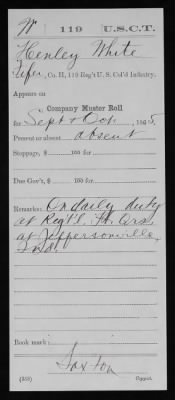 W 119 U.S.C.T.
Henley White
Fifer, Co. H, 119 Reg't U. S. Col'd Infantry.
Appears on
Company Muster Roll
for Sept & Oct, 1865.
Present or absent absent
Stoppage, $ 100 for
Due Gov't, $ 100 for
Remarks: On daily duty
at Reg't'l. Hd. Qrs.
at Jeffersonville,
Ind.
Book mark:
Saxton
(358) Copyist.